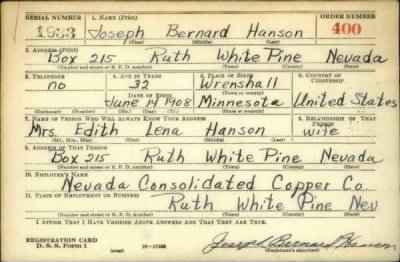 SERIAL NUMBER 1. NAME (Print) ORDER NUMBER
1933 Joseph Bernard Hanson 400
(First) (Middle) (Last)
2. ADDRESS (Print)
Box 215 Ruth White Pine Nevada
(Number and street or R. F. D. number) (Town) (County) (State)
3. TELEPHONE 4. AGE IN YEARS 5. PLACE OF BIRTH 6. COUNTRY OF CITIZENSHIP
no 32 Wrenshall
DATE OF BIRTH (Town or county)
June 14 1908 Minnesota United States
(Exchange) (Number) (Mo.) (Day) (Yr.) (State or country)
7. NAME OF PERSON WHO WILL ALWAYS KNOW YOUR ADDRESS 8. RELATIONSHIP OF THAT PERSON
Mrs. Edith Lena Hanson wife
(Mr., Mrs., Miss) (First) (Middle) (Last)
9. ADDRESS OF THAT PERSON
Box 215 Ruth White Pine Nevada
(Number and street or R. F. D. number) (Town) (County) (State)
10. EMPLOYER'S NAME
Nevada Consolidated Copper Co.
11. PLACE OF EMPLOYMENT OR BUSINESS
Ruth White Pine Nev
(Number and street or R. F. D. number) (Town) (County) (State)
I AFFIRM THAT I HAVE VERIFIED ABOVE ANSWERS AND THAT THEY ARE TRUE.
REGISTRATION CARD
D. S. S. Form 1 (over) Joseph Bernard Hanson
(Registrant's signature)